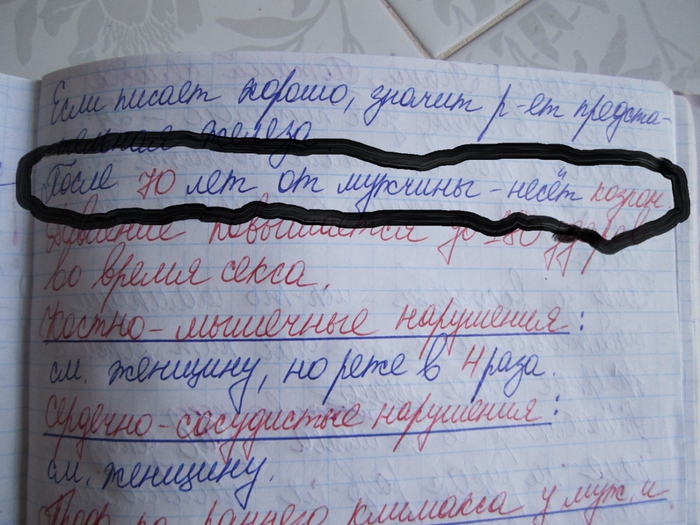 Если писает хорошо, значит р-ет предста-
тельная железа
После 70 лет от мужчины - несёт козлом
Давление повышается до 180
во время секса.
Костно-мышечные нарушения:
см. женщину, но реже в 4 раза.
Сердечно-сосудистые нарушения:
см. женщину.
раннего климакса у муж. и